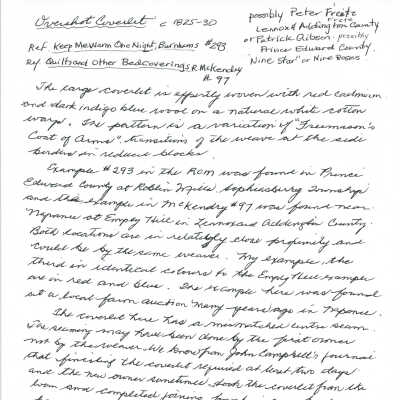 Overshot Coverlet c 1825-30
possibly Peter Fretz
circle
Lennox & Addington County
or Patrick Gibson - possibly
Prince Edward County.
'Nine Star' or Nine Roses
Ref Keep Me Warm One Night, Burnhams #293
Ref Quilts and Other Bedcoverings, R. McKendry
# 97
The large coverlet is expertly woven with red
and dark indigo blue wool on a natural white cotton
warp. The pattern is a variation of "Freemason's
Coat of Arms" transitions of the weave at the side
borders in reduced blocks.
Example #293 in the ROM was found in Prince
Edward County at Robin Mills Sophiasburg Township
and the example in McKendry #97 was found near
Napanee at Empey Hill in Lennox and Addington County.
Both locations are in relatively close proximity and
could be by the same weaver. My example, the
third in identical colours to the Empey Hill example
are in red and blue. The example here was found
at a local farm auction many years ago in Napanee.
The coverlet here has a mismatched centre seam.
The seaming may have been done by the first owner
not by the weaver. We know from John Campbell's journal
that finishing the coverlet required at least two days
and the new owner sometimes took the coverlet from the
loom and completed joining